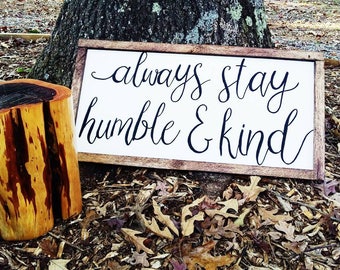 always stay
humble & kind